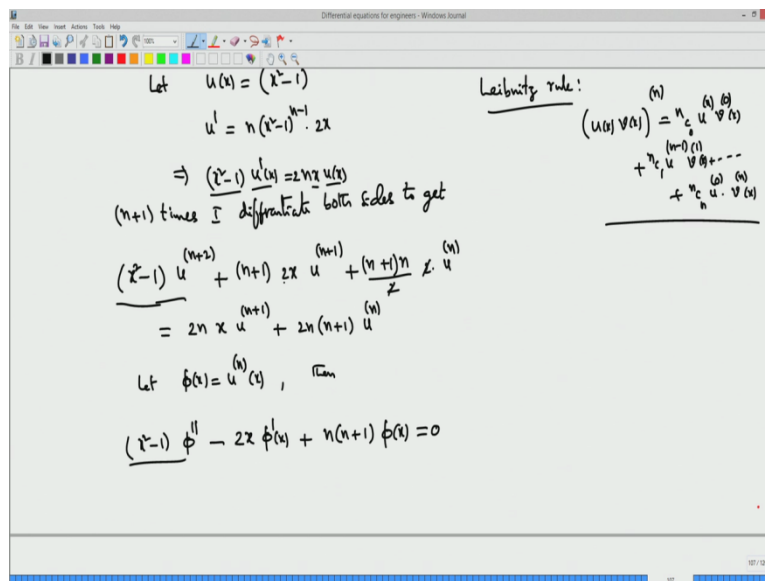 Differential equations for engineers - Windows Journal
File Edit View Insert Actions Tools Help
100%
B I
Let u(x) = (x²-1)
u' = n(x²-1)ⁿ⁻¹ · 2x
⇒ (x²-1) u'(x) = 2nx u(x)
(n+1) times I diffrantiate both sides to get
(x²-1) u⁽ⁿ⁺²⁾ + (n+1) 2x u⁽ⁿ⁺¹⁾ + (n+1)n/2 2· u⁽ⁿ⁾
= 2n x u⁽ⁿ⁺¹⁾ + 2n(n+1) u⁽ⁿ⁾
Let ϕ(x) = u⁽ⁿ⁾(x), Then
(x²-1) ϕ'' - 2x ϕ'(x) + n(n+1) ϕ(x) = 0
Leibnitz rule:
(u(x) v(x))⁽ⁿ⁾ = ⁿc₀ u⁽ⁿ⁾ v⁽⁰⁾(x)
+ ⁿc₁ u⁽ⁿ⁻¹⁾ v⁽¹⁾(x) + ----
+ ⁿcₙ u⁽⁰⁾ · v⁽ⁿ⁾(x)